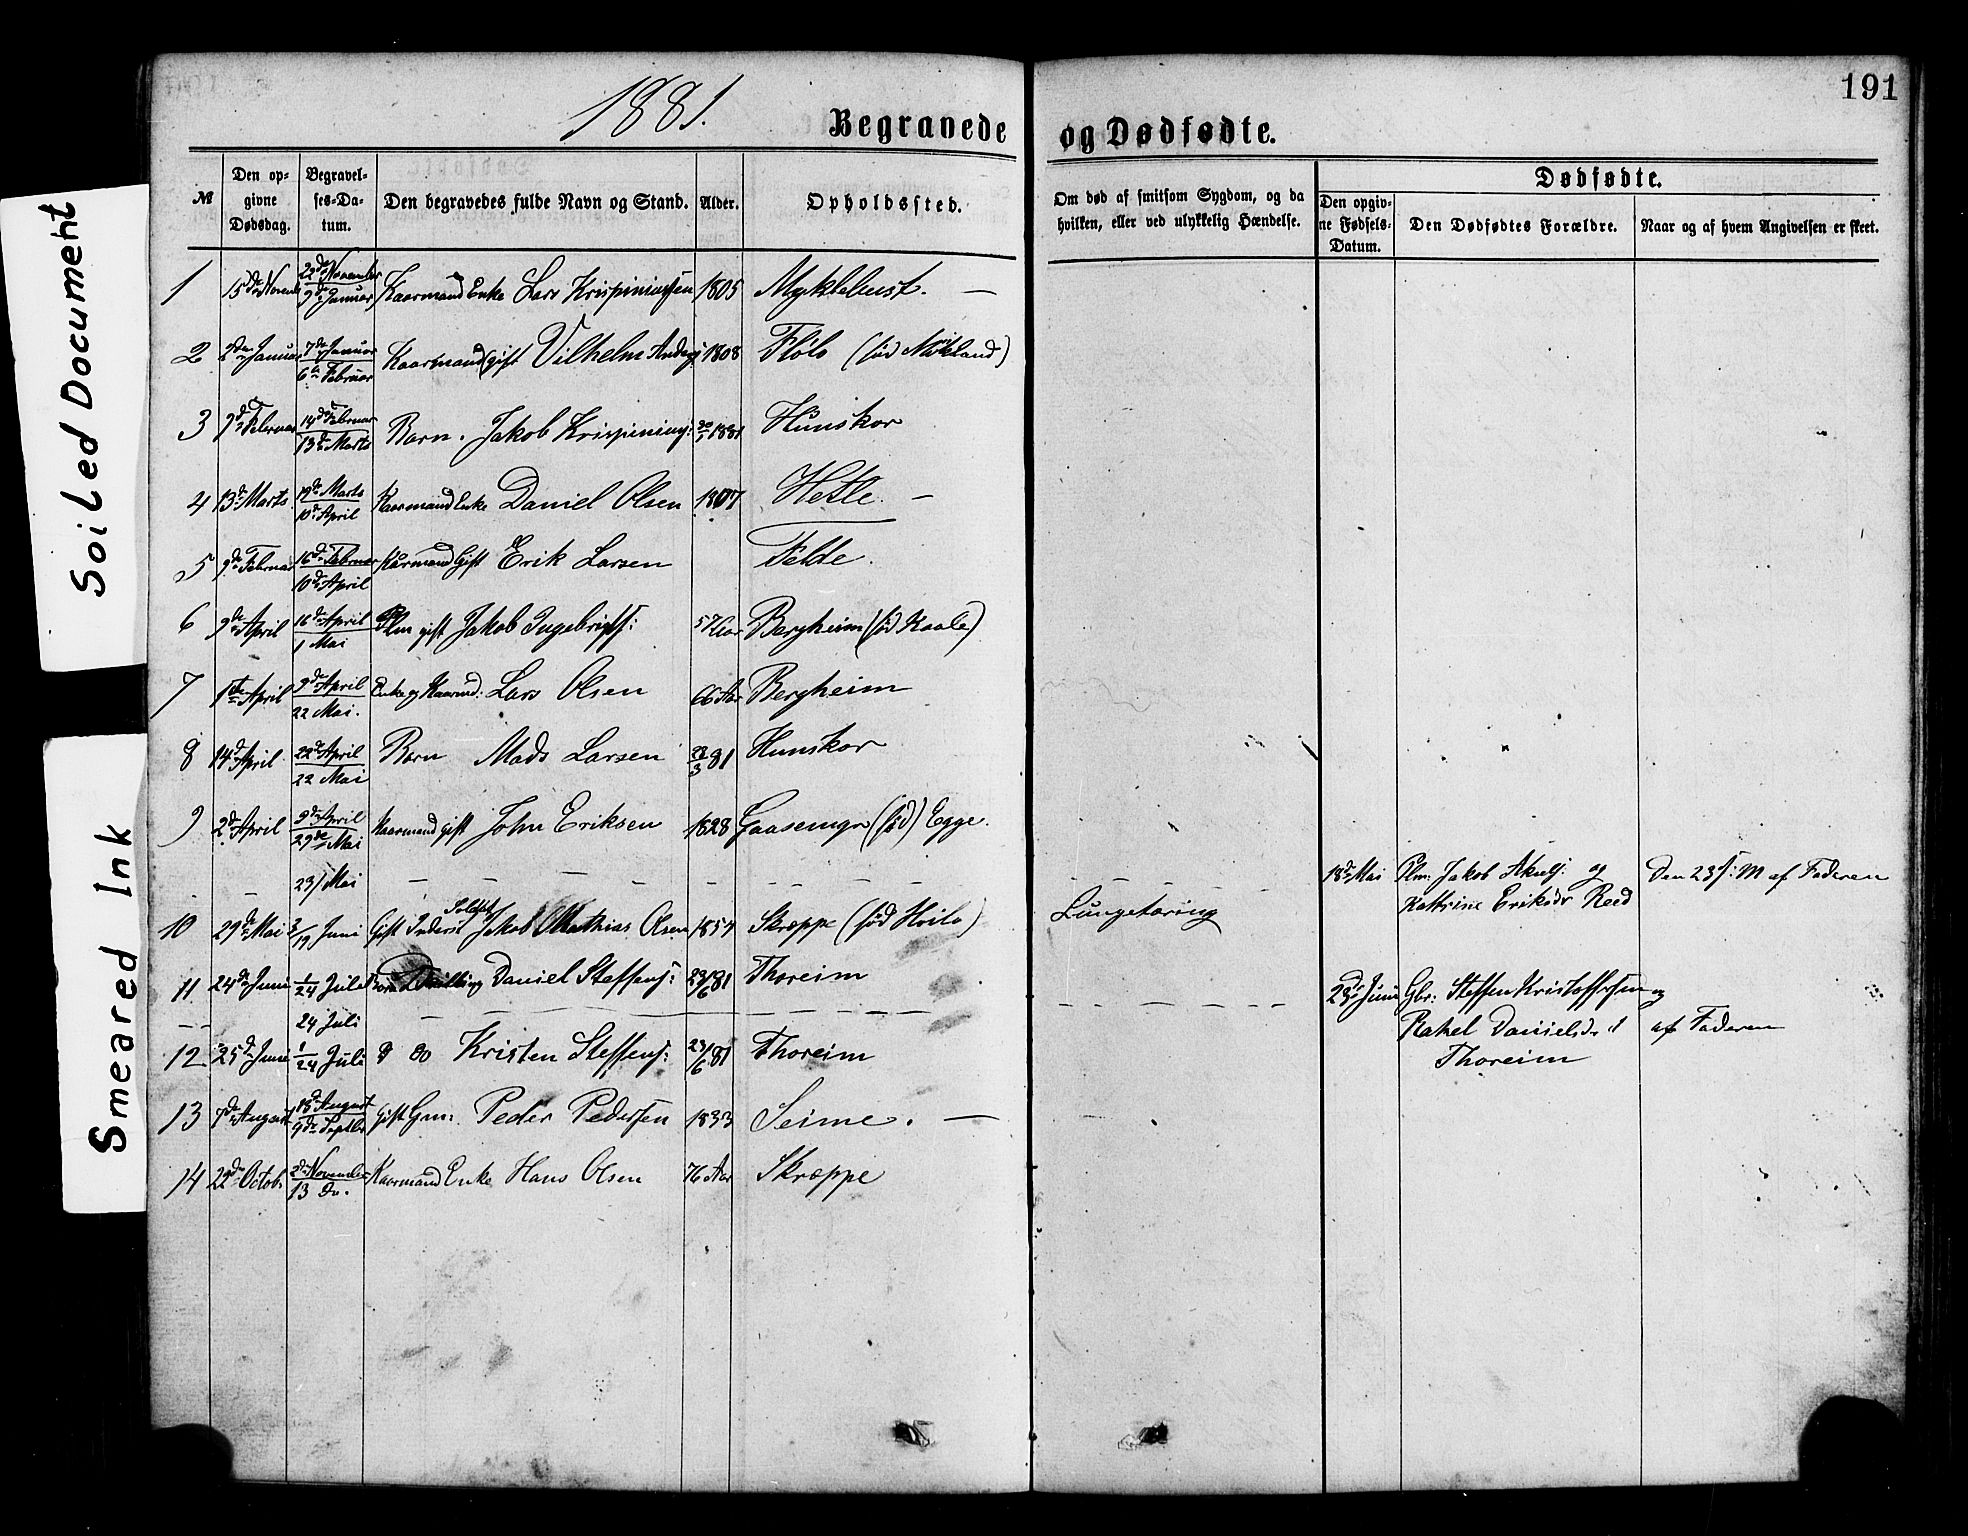 191
1881.
Begravede og Dødfødte.
№
Den opgivne Dødsdag.
Begravelses-Datum.
Den begravedes fulde Navn og Stand.
Alder.
Opholdssted.
Om død af smitsom Sygdom, og da hvilken, eller ved ulykkelig Hændelse.
Dødfødte.
Den opgivne Fødsels-Datum.
Den Dødfødtes Forældre.
Naar og af hvem Angivelsen er skeet.
Soiled Document
Smeared Ink
1 15de Novemb 22de November 9de Januar Kaarmand Enke Lars Krispiniussen 1805 Myklebust. —
2 2den Januar 7de Januar 6te Februar Kaarmand (gift Vilhelm Anders: 1808 Flølo (fød Mykland)
3 9de Februar 14de Februar 13de Marts Barn. Jakob Krispinius: 1881 Hunskor
4 13de Marts 19de Marts 10de April Kaarmand Enke Daniel Olsen 1807 Hetle. —
5 9de Februar 16de Februar 10de April Kaarmand Gift Erik Larsen Felde.
6 9de April 16de April 1 Mai Plm gift Jakob Ingebrigts: 57 Aar Bergheim (fød Kaale)
7 1ste April 9de April 22 Mai. Enke og Kaarmd: Lars Olsen 66 Aar Bergheim
8 14de April 22de April 22 Mai Barn Mads Larsen 23/3 81 Hunskor
9 2de April 9de April 29de Mai Kaarmand gift John Eriksen 1828 Gaasemyr (fød) Egge.
— 23/ Mai — — — 18de Mai Plm: Jakob og Den 23 M af Faderen
Kattrine Eriksdr Reed
10 29de Mai 3/19 Juni Gift Inderst Jakob Mathias Olsen 1857 Skreppe (fød Hvilo) Lungetæring
11 24de Juni 1/24 Juli Barn Tvilling Daniel Steffens: 23/6 81 Thoreim
— 24 Juli — — — 23de Juni Gbr: Steffen Kristoffersen og
Rakel Danielsdr af Faderen
Thoreim
12 25de Juni 1/24 Juli d do Kristen Steffens: 23/6 81 Thoreim
13 7de August 13de August 9de Septbr Gift Gm: Peder Pedersen 1833 Seime. —
14 22de Octob. 2de November 13 do. Kaarmand Enke Hans Olsen 76 Aar Skreppe